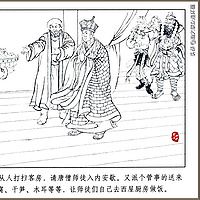 从人打扫客房，请唐僧师徒入内安歇。又派个管事的送来
腐、干笋、木耳等等，让师徒们自己去西屋厨房做饭。